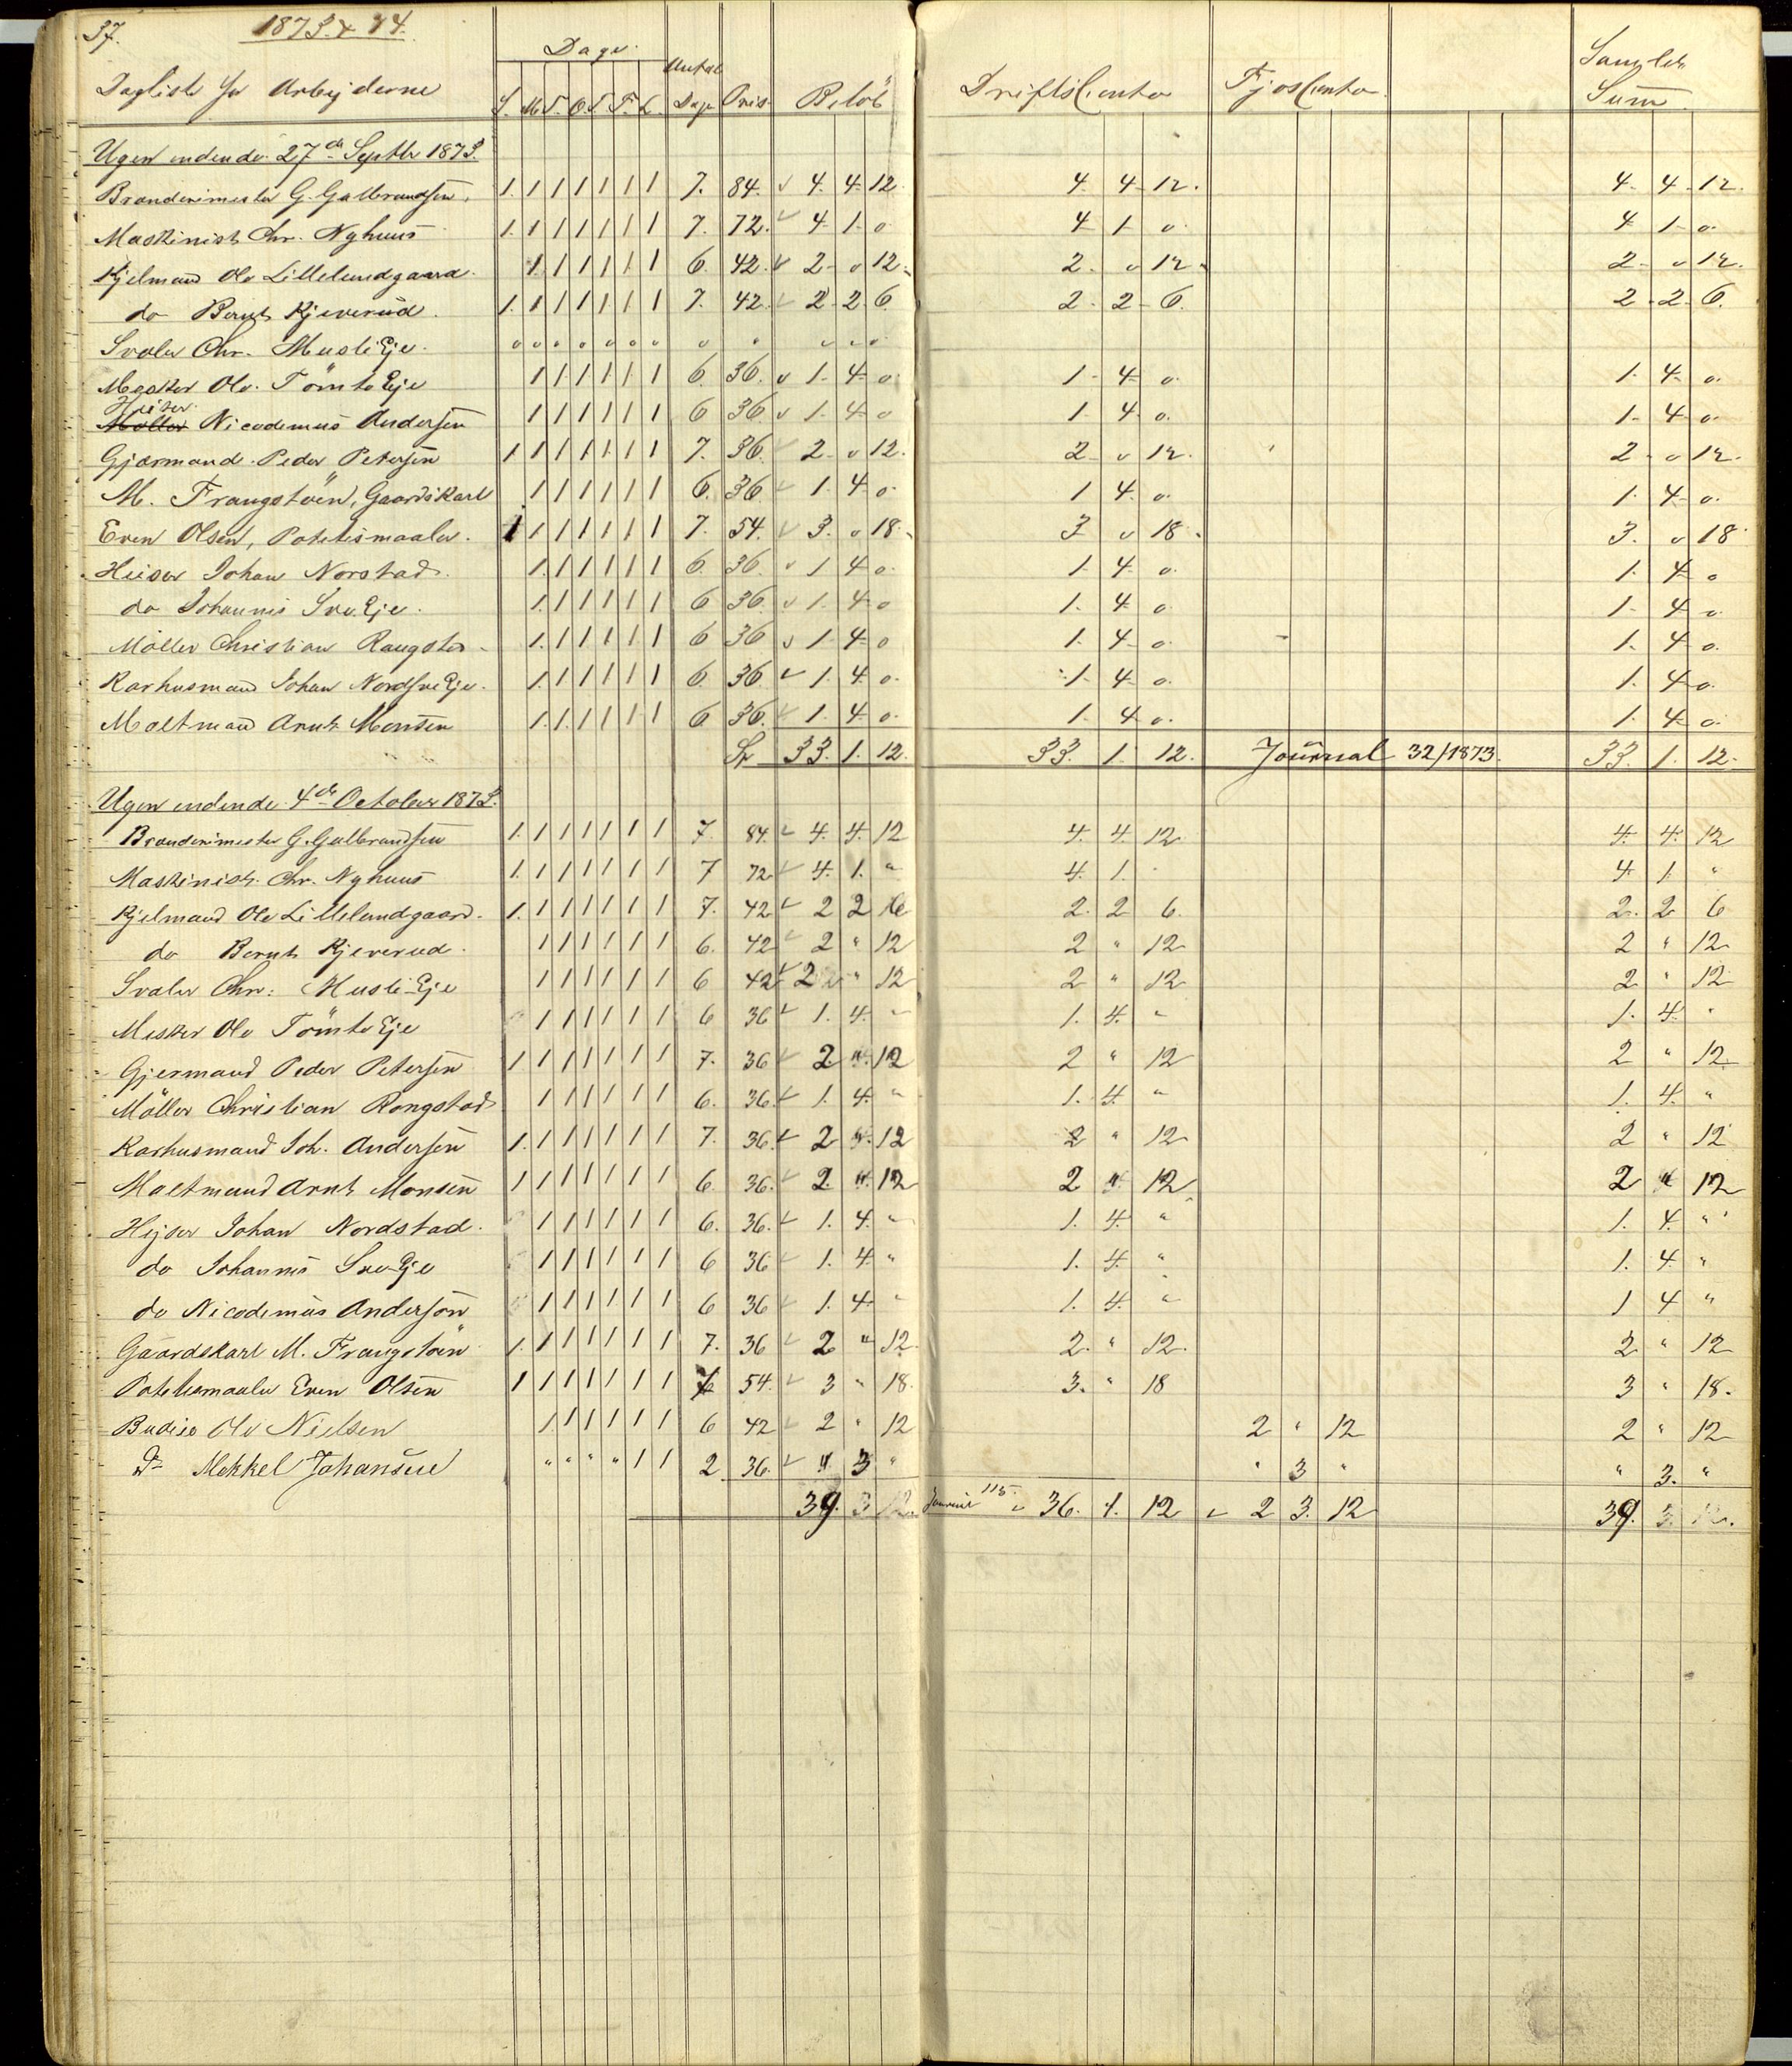 37. 1873 & 74.
Dage
Daglist for Arbejderne S. M. T. O. T. F. L. Antal Dage Pris Beløb DriftsConto FjosConto Samlet Sum
Ugen endende 27de Septbr 1873.
Brænderimester G. Gulbrandsen. 1. 1 1 1 1 1 1 7. 84. 4. 4. 12. 4. 4. 12. 4. 4. 12.
Maskinist Chr. Nyhuus 1. 1 1 1 1 1 1 7. 72. 4. 1. o 4 1 o. 4 1 o.
Kjelmand Ole Lillelundgaard. 1. 1 1 1 1 1 6. 42. 2. o 12. 2. o 12. 2. o 12.
do Bernt Kjeverud. 1. 1 1 1 1 1 1 7. 42. 2. 2. 6. 2. 2. 6. 2. 2. 6.
Svaler Chr. MusliEje. o o o o o o o o o o o o
Mesker Ole TömteEje 1 1 1 1 1 1 6. 36. 1. 4. o. 1. 4. o. 1. 4. o.
Heiser
Møller Nicodemus Andersen 1 1 1 1 1 1 6 36 1. 4. o 1. 4. o. 1. 4. o.
Gjærmand Peder Petersen 1 1 1 1 1 1 1 7. 36. 2. o 12. 2. o 12. 2. o 12.
M. Frangstöen, Gaardskarl 1 1 1 1 1 1 6. 36 1. 4. o. 1 4. o. 1. 4. o.
Even Olsen, Potetesmaaler. 1 1 1 1 1 1 1 7. 54. 3. o 18. 3 o 18. 3. o 18.
Heiser Johan Norstad. 1. 1 1 1 1 1 6. 36. 1 4 o. 1. 4. o. 1. 4. o
do Johannes SveEje. 1. 1 1 1 1 1 6 36. 1. 4. o 1. 4. o 1. 4. o.
Møller Christian Rangstad 1. 1 1 1 1 1 6 36 1. 4. o 1. 4. o. 1. 4. o.
Karhusmand Johan NordsveEje. 1. 1 1 1 1 1 6. 36 1. 4. o. 1. 4. o. 1. 4. o.
Maltmand Arnt Monsen 1. 1. 1 1 1 1 6 36. 1. 4. o. 1. 4. o. 1. 4. o.
33. 1. 12. 33. 1. 12. Journal 32/1873. 33. 1. 12.
Ugen endende 4de October 1873.
Brænderimester G. Gulbrandsen 1. 1 1 1 1 1 1 7. 84. 4. 4. 12 4. 4. 12 4. 4. 12
Maskinist Chr. Nyhuus 1. 1 1 1 1 1 1 7 72 4. 1. " 4. 1. " 4 1. "
Kjelmand Ole Lillelundgaard. 1. 1 1 1 1 1 1 7. 42 2 2 6 2. 2 6. 2. 2 6
do Bernt Kjeverud. 1 1 1 1 1 1 6. 42 2 " 12 2 " 12 2 " 12
Svaler Chr: Musli-Eje 1 1 1 1 1 1 6 42 2 " 12 2 " 12 2 " 12
Mesker Ole TömteEje 1 1 1 1 1 1 6 36 1. 4. " 1. 4. " 1. 4. "
Gjermand Peder Petersen 1 1 1 1 1 1 1 7. 36 2. " 12 2 " 12 2 " 12
Møller Christian Rongstad 1 1 1 1 1 1 6. 36 1. 4. " 1. 4. " 1. 4. "
Karhusmand Joh. Andersen 1. 1 1 1 1 1 1 7. 36. 2 " 12 2 " 12 2 " 12
Maltmand Arnt Monsen 1 1 1 1 1 1 1 6. 36. 2. " 12 2 " 12 2 " 12
Hejser Johan Nordstad. 1 1 1 1 1 1 6. 36. 1. 4. " 1. 4. " 1. 4. "
do Johannes Sve-Eje 1 1 1 1 1 1 6 36 1. 4. " 1. 4. " 1. 4. "
do Nicodemus Andersen 1 1 1 1 1 1 6 36 1. 4. " 1. 4. " 1 4 "
Gaardskarl M. Frangstöen 1. 1 1 1 1 1 1 7. 36 2 " 12. 2. " 12. 2. " 12
Potetesmaaler Even Olsen 1 1 1 1 1 1 1 7 54. 3 " 18. 3. " 18 3 " 18.
Budeie Ole Nielsen 1 1 1 1 1 1 6 42 2 " 12 2 " 12 2 " 12
do Mekkel Johansen " " " " 1 1 2 36. " 3 " " 3 " " 3. "
39. 3. 12. 115. 36. 1. 12 2 3. 12 39. 3. 12.